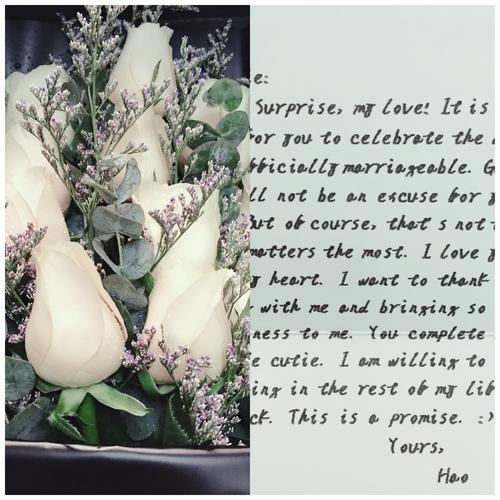 e:
Surprise, my love! It is
for you to celebrate the
officially marriageable.
ll not be an excuse for
But of course, that's not
matters the most. I love
heart. I want to thank
with me and bringing so
ness to me. You complete
e cutie. I am willing to
ing in the rest of my lif
ck. This is a promise. :)
Yours,
Hao